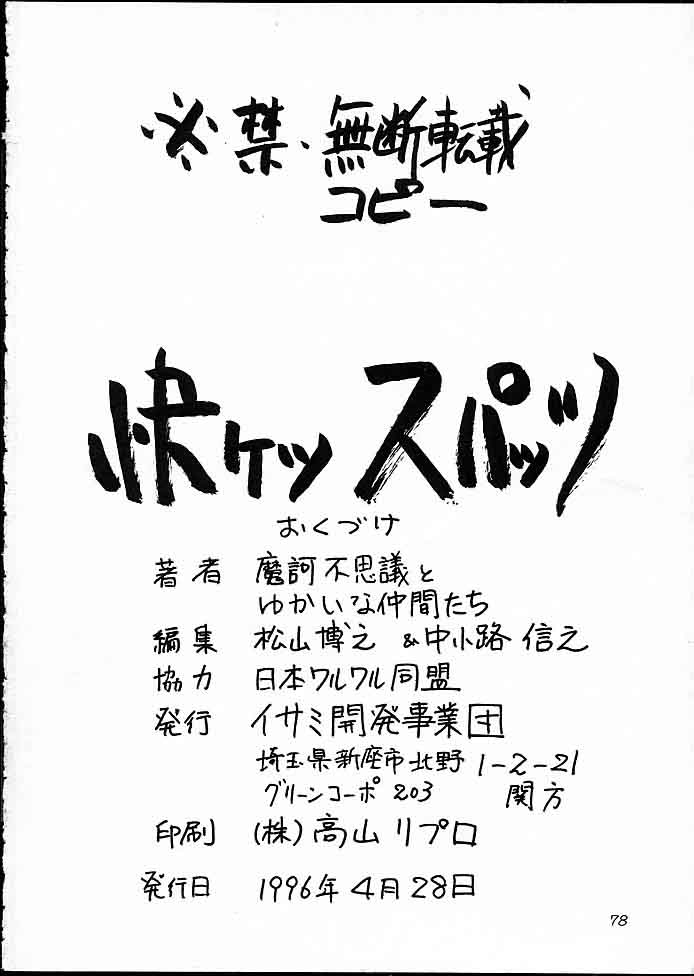 ※禁・無断転載
コピー
快ケツ スパッツ
おくづけ
著者 魔訶不思議と
ゆかいな仲間たち
編集 松山博之 &中小路 信之
協力 日本ワルワル同盟
発行 イサミ開発事業団
埼玉県新座市北野 1-2-21
グリーンコーポ 203 関方
印刷 (株)高山リプロ
発行日 1996年4月28日
78